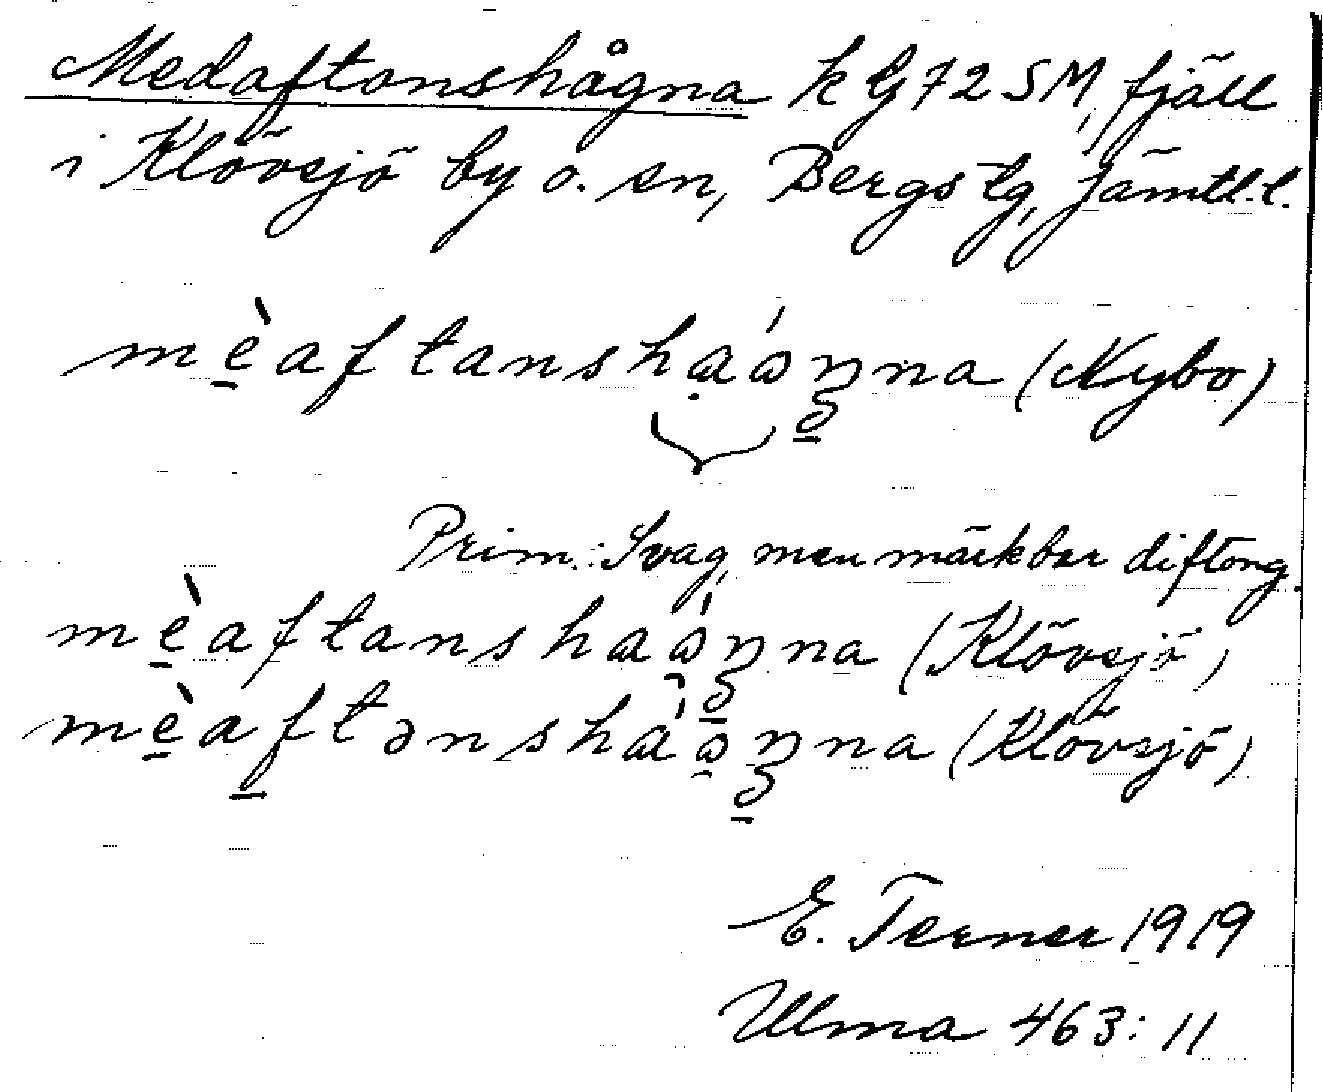 Medaftonshågna k G72 SM, fjäll
i Klövsjö by o. sn, Bergs tg, Jämtl. l.
mè̱aftanshạáŋna (Nybo)
Prim.: Svag, men märkbar diftong.
mè̱aftanshaáŋna (Klövsjö)
mè̱a̱ftənsháaŋna (Klövsjö)
E. Terner 1919
Ulma 463:11